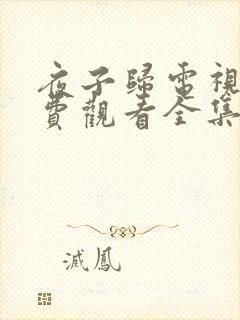 夜子歸電視
費觀看全集
滅鳳